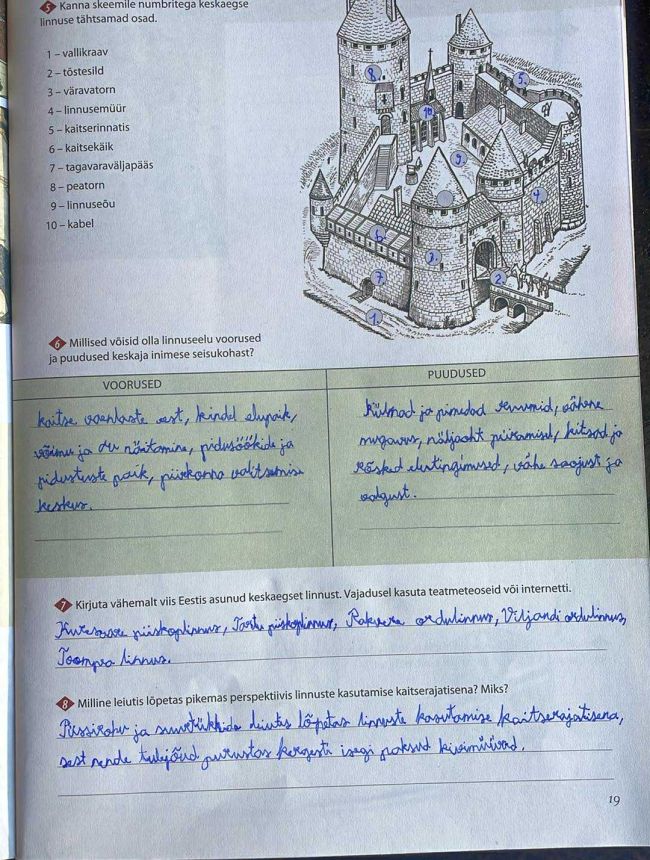 5 Kanna skeemile numbritega keskaegse
linnuse tähtsamad osad.
1 – vallikraav
2 – tõstesild
3 – väravatorn
4 – linnusemüür
5 – kaitserinnatis
6 – kaitsekäik
7 – tagavaraväljapääs
8 – peatorn
9 – linnuseõu
10 – kabel
8.
5.
10.
9.
4.
6
3.
7.
2.
1.
6 Millised võisid olla linnuseelu voorused
ja puudused keskaja inimese seisukohast?
VOORUSED
kaitse vaenlaste eest, kindel elupaik,
võimu ja au näitamine, pidusöökide ja
pidustuste paik, piirkonna valitsemise
keskus.
PUUDUSED
Külmad ja pimedad ruumid, vähene
mugavus, näljaoht piiramisel, kitsad ja
rõsked elutingimused, vähe soojust ja
valgust.
7 Kirjuta vähemalt viis Eestis asunud keskaegset linnust. Vajadusel kasuta teatmeteoseid või internetti.
Kuressaare piiskoplinnus, Tartu piiskoplinnus, Rakvere ordulinnus, Viljandi ordulinnus,
Toompea linnus.
8 Milline leiutis lõpetas pikemas perspektiivis linnuste kasutamise kaitserajatisena? Miks?
Püssirohu ja suurtükkide leiutis lõpetas linnuste kasutamise kaitserajatisena,
sest nende tulejõud purustas kergesti isegi paksud kivimüürid.
19